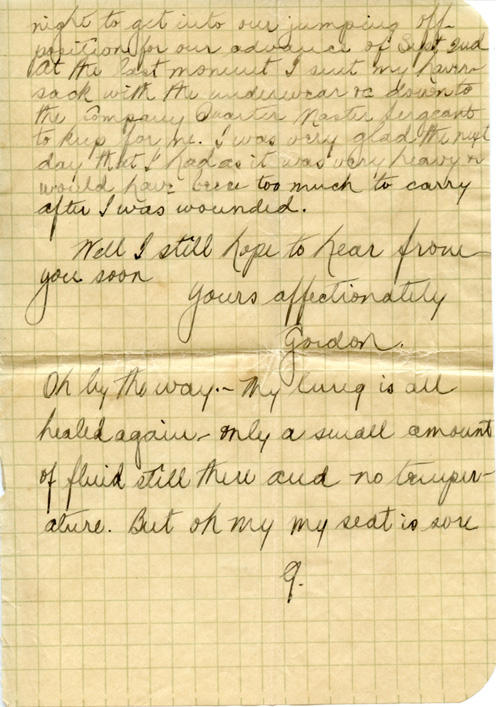 night to get into our jumping off
position for our advance of Sept 2nd
At the last moment I sent my haver-
sack with the underwear &c down to
the Company Quarter Master Sergeant
to keep for me. I was very glad the next
day that I had as it was very heavy &
would have been too much to carry
after I was wounded.
Well I still hope to hear from
you soon
Yours affectionately
Gordon.
Oh by the way.- My lung is all
healed again- only a small amount
of fluid still there and no temper-
ature. But oh my my seat is sore
G.